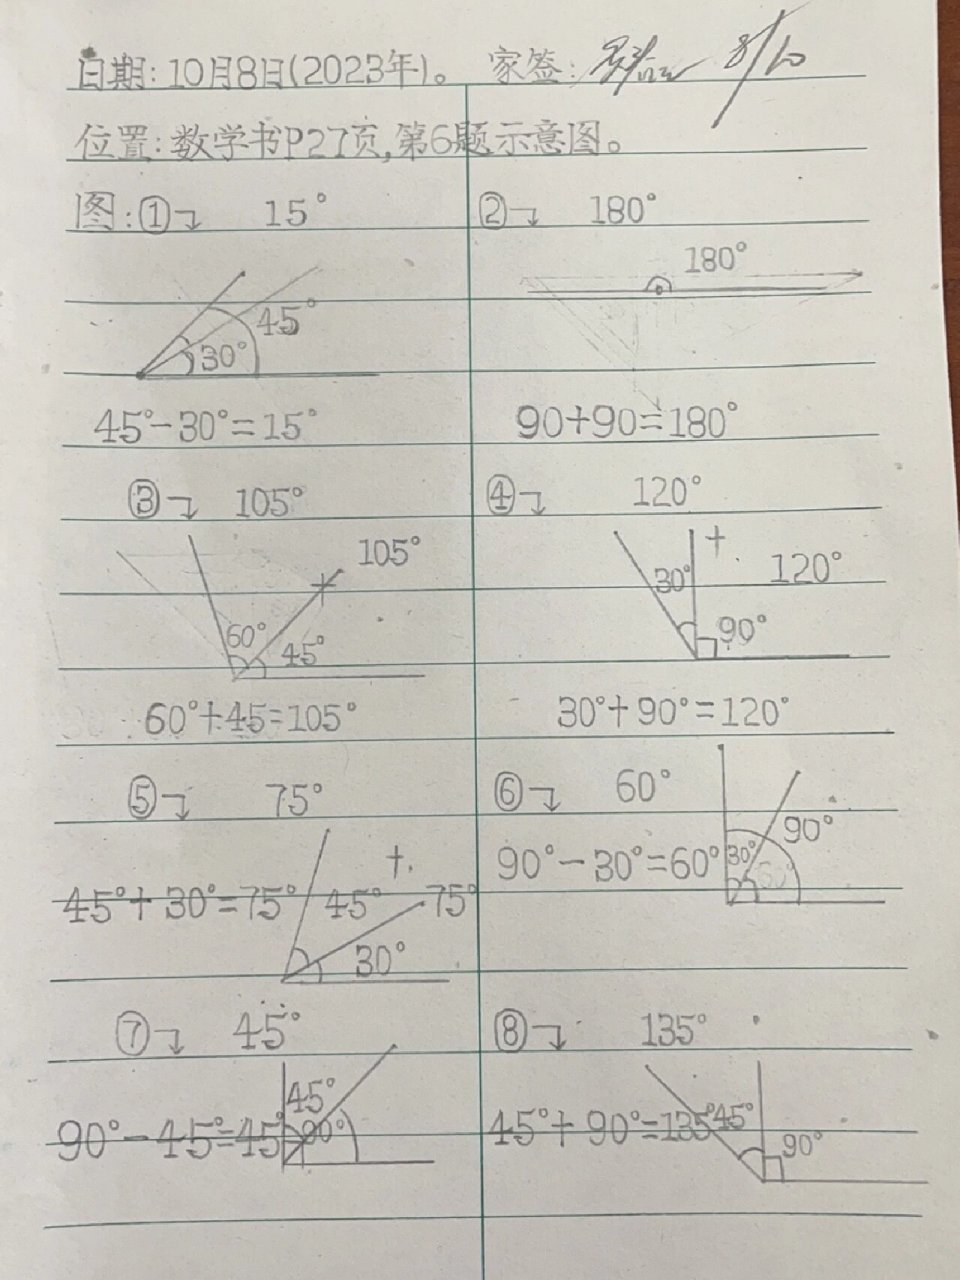 日期: 10月8日(2023年)。 家签: 8/10
位置: 数学书P27页,第6题示意图。
图: ① 15°
45°
30°
45°-30°=15°
② 180°
180°
90+90=180°
③ 105°
105°
60° 45°
60°+45=105°
④ 120°
30° 120°
90°
30°+90°=120°
⑤ 75°
45°+30°=75° 45° 75°
30°
⑥ 60°
90°
90°-30°=60° 30° 60°
⑦ 45°
45°
90°-45°=45° 90°
⑧ 135°
45°+90°=135° 45°
90°